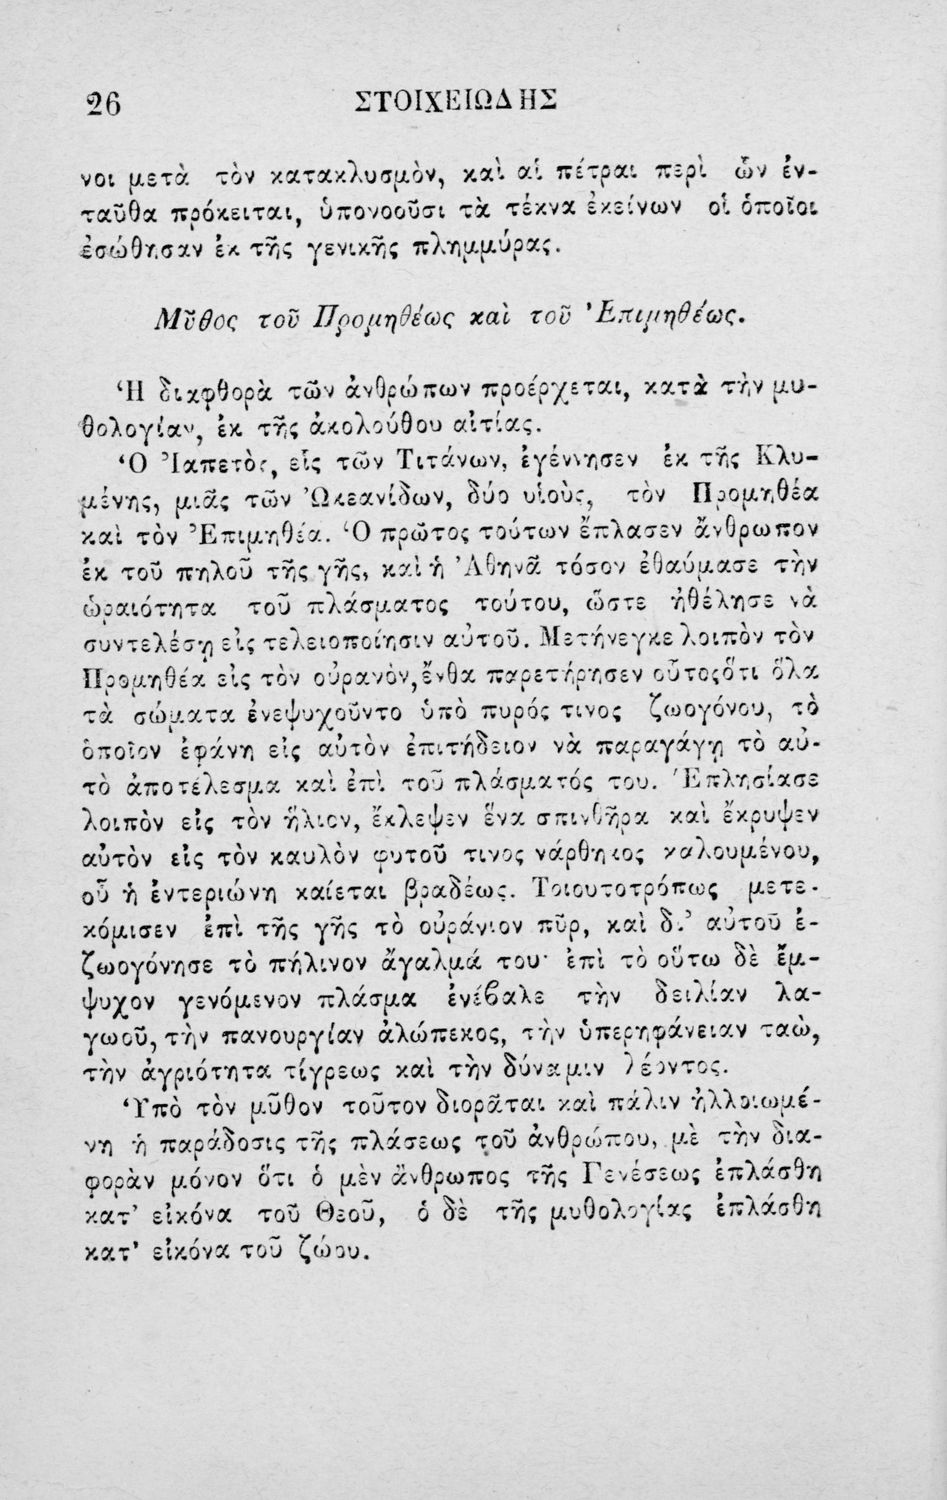 26 ΣΤΟΙΧΕΙΩΔΗΣ
νοι μετὰ τὸν κατακλυσμὸν, καὶ αἱ πέτραι περὶ ὧν ἐν-
ταῦθα πρόκειται, ὑπονοοῦσι τὰ τέκνα ἐκείνων οἱ ὁποῖοι
ἐσώθησαν ἐκ τῆς γενικῆς πλημμύρας.
Μῦθος τοῦ Προμηθέως καὶ τοῦ Ἐπιμηθέως.
Ἡ διαφθορὰ τῶν ἀνθρώπων προέρχεται, κατὰ τὴν μυ-
θολογίαν, ἐκ τῆς ἀκολούθου αἰτίας.
Ὁ Ἰαπετὸς, εἷς τῶν Τιτάνων, ἐγέννησεν ἐκ τῆς Κλυ-
μένης, μιᾶς τῶν Ὠκεανίδων, δύο υἱοὺς, τὸν Προμηθέα
καὶ τὸν Ἐπιμηθέα. Ὁ πρῶτος τούτων ἔπλασεν ἄνθρωπον
ἐκ τοῦ πηλοῦ τῆς γῆς, καὶ ἡ Ἀθηνᾶ τόσον ἐθαύμασε τὴν
ὡραιότητα τοῦ πλάσματος τούτου, ὥστε ἠθέλησε νὰ
συντελέσῃ εἰς τελειοποίησιν αὐτοῦ. Μετήνεγκε λοιπὸν τὸν
Προμηθέα εἰς τὸν οὐρανὸν, ἔνθα παρετήρησεν οὗτος ὅτι ὅλα
τὰ σώματα ἐνεψυχοῦντο ὑπὸ πυρός τινος ζωογόνου, τὸ
ὁποῖον ἐφάνη εἰς αὐτὸν ἐπιτήδειον νὰ παραγάγῃ τὸ αὐ-
τὸ ἀποτέλεσμα καὶ ἐπὶ τοῦ πλάσματός του. Ἐπλησίασε
λοιπὸν εἰς τὸν ἥλιον, ἔκλεψεν ἕνα σπινθῆρα καὶ ἔκρυψεν
αὐτὸν εἰς τὸν καυλὸν φυτοῦ τινος νάρθηκος καλουμένου,
οὗ ἡ ἐντεριώνη καίεται βραδέως. Τοιουτοτρόπως μετε-
κόμισεν ἐπὶ τῆς γῆς τὸ οὐράνιον πῦρ, καὶ δι' αὐτοῦ ἐ-
ζωογόνησε τὸ πήλινον ἄγαλμά του· ἐπὶ τὸ οὕτω δὲ ἔμ-
ψυχον γενόμενον πλάσμα ἐνέβαλε τὴν δειλίαν λα-
γωοῦ, τὴν πανουργίαν ἀλώπεκος, τὴν ὑπερηφάνειαν ταὼ,
τὴν ἀγριότητα τίγρεως καὶ τὴν δύναμιν λέοντος.
Ὑπὸ τὸν μῦθον τοῦτον διορᾶται καὶ πάλιν ἠλλοιωμέ-
νη ἡ παράδοσις τῆς πλάσεως τοῦ ἀνθρώπου, μὲ τὴν δια-
φορὰν μόνον ὅτι ὁ μὲν ἄνθρωπος τῆς Γενέσεως ἐπλάσθη
κατ' εἰκόνα τοῦ Θεοῦ, ὁ δὲ τῆς μυθολογίας ἐπλάσθη
κατ' εἰκόνα τοῦ ζώου.